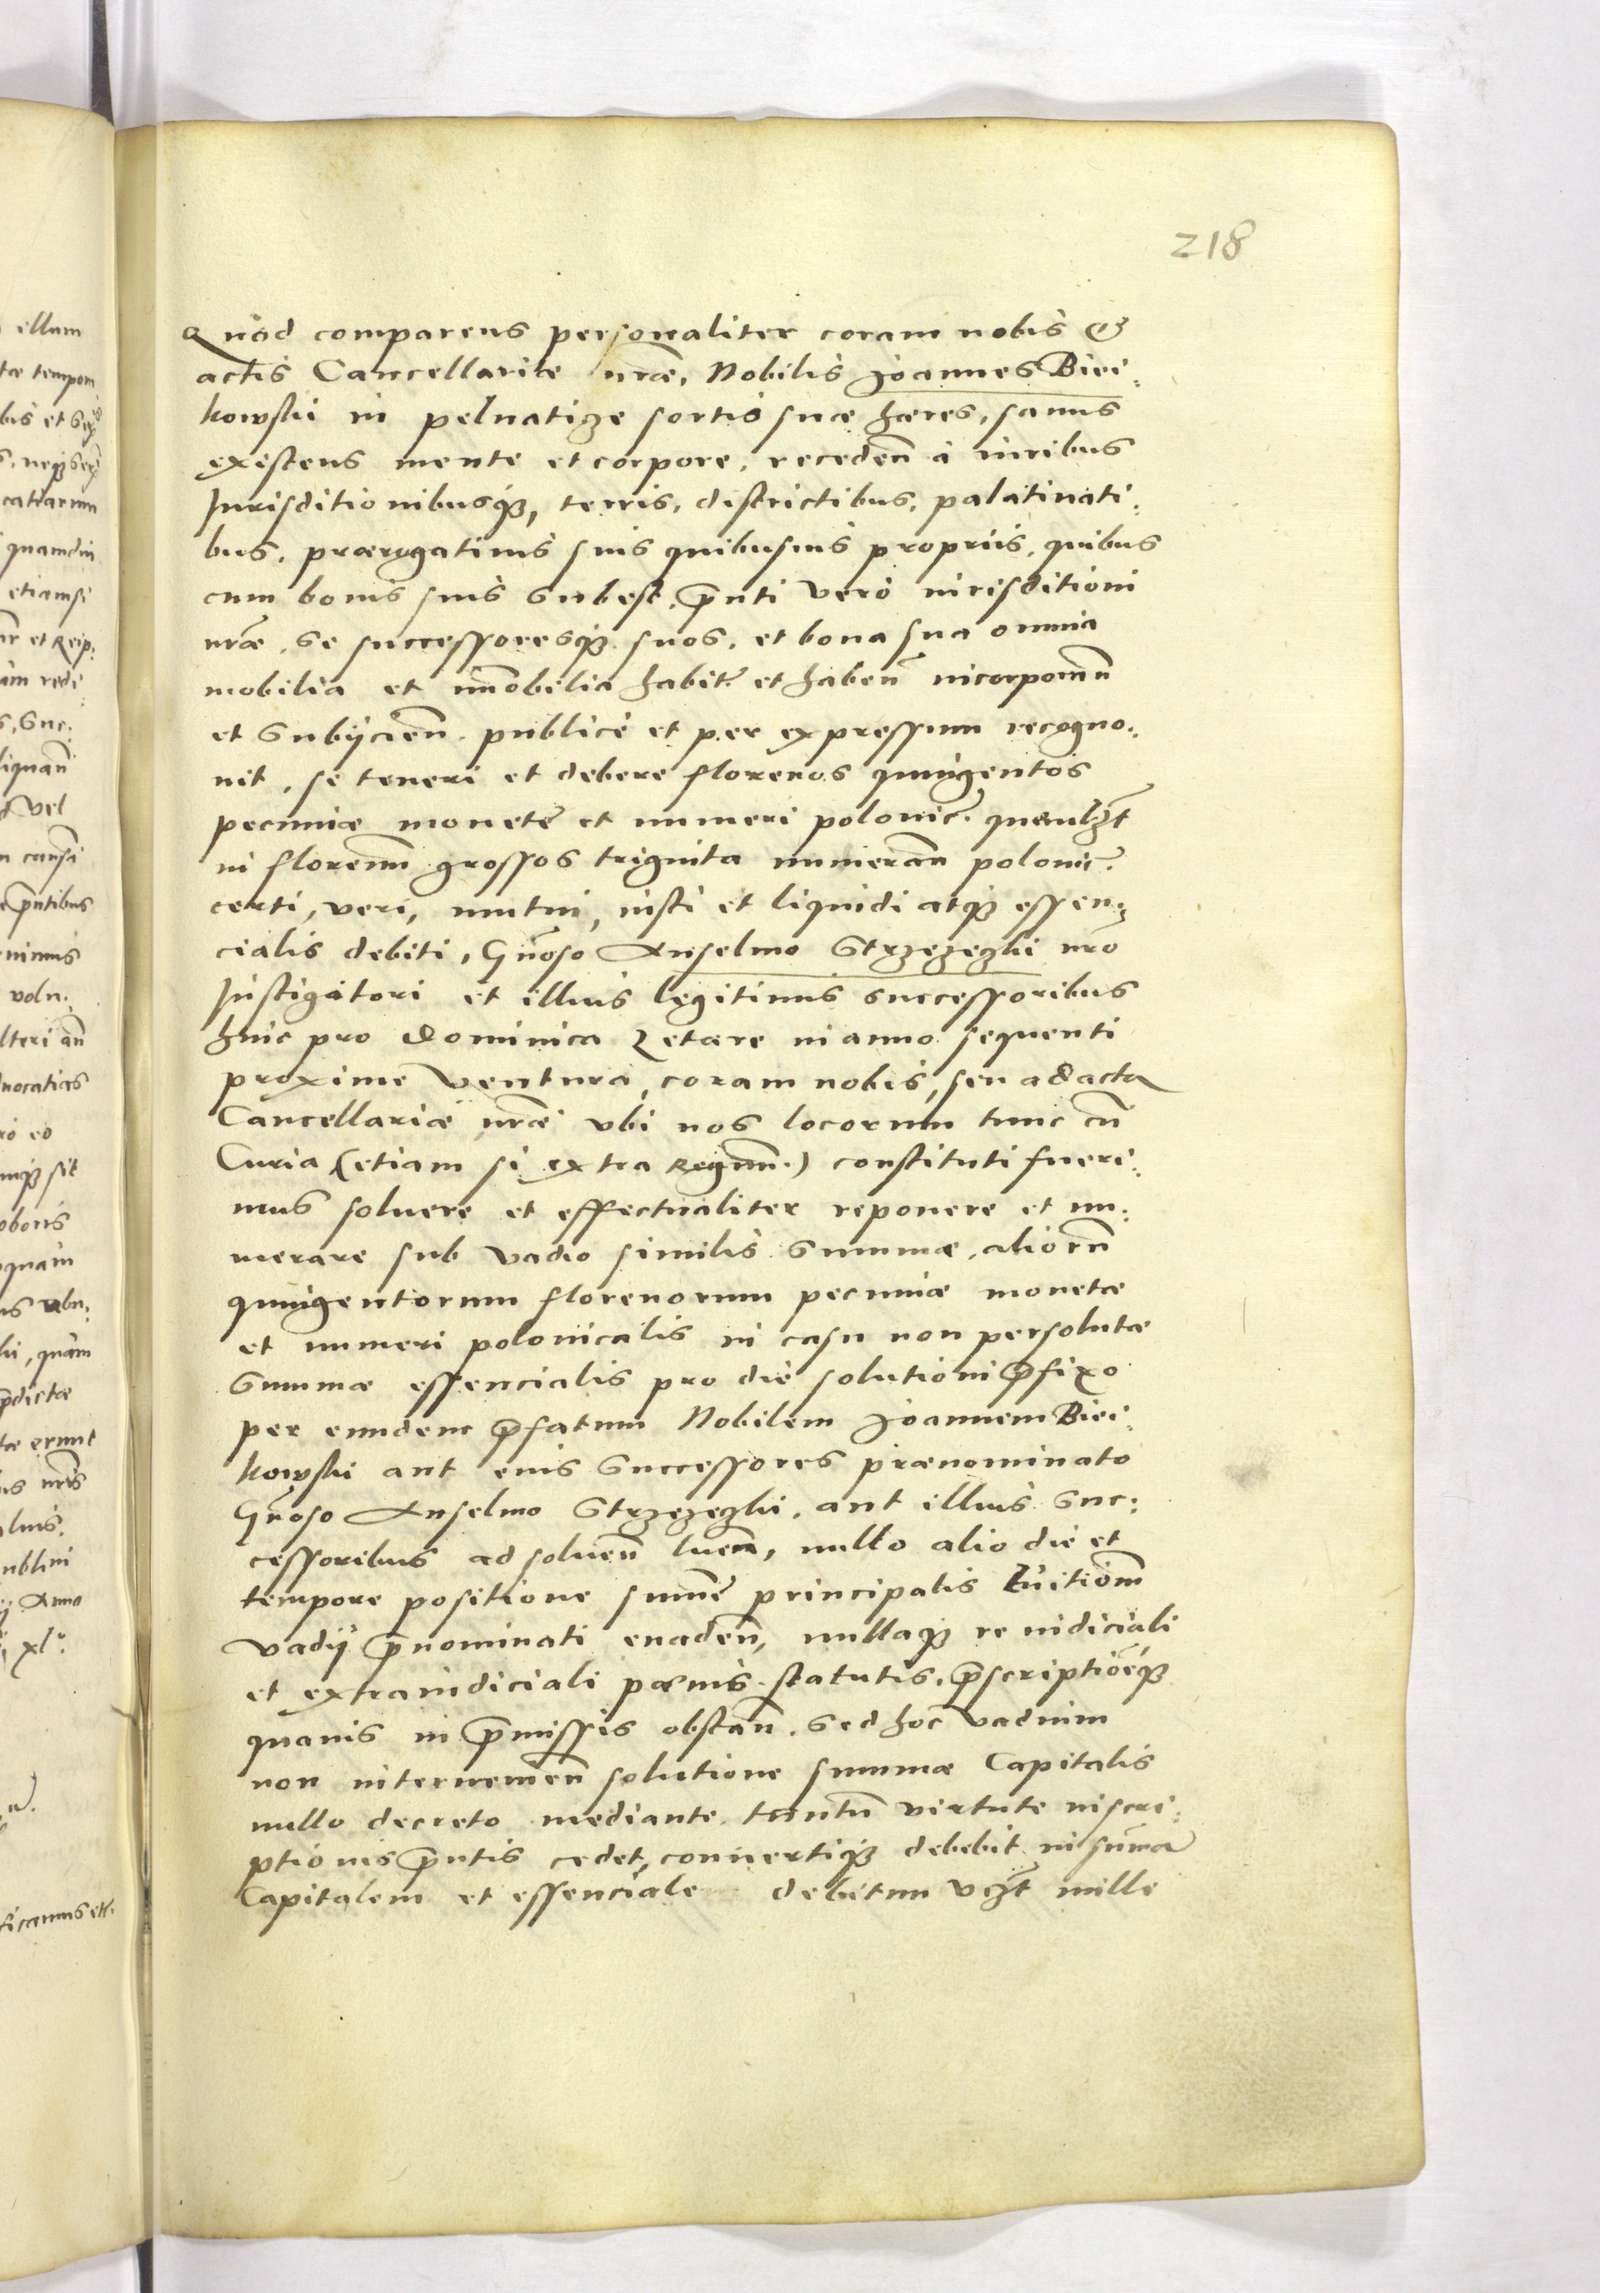 218
Quod comparens personaliter coram nobis et
actis Cancellariae nrae, Nobilis Joannes Biei:
kowski in pelnatize sortis suae haeres, sanus
existens mente et corpore, receden̄ à iuribus
Jurisditionibusq3, terris, districtibus, palatinati:
bus, praerogatiuis suis quibusuis propriis, quibus
cum bonis suis subest, p̄nti vero iurisditioni
nrae, se successoresq3 suos, et bona sua omnia
mobilia et im̄obilia habit. et haben̄ incorporan̄
et subijcien̄. publicè et per expressum recogno:
uit, se teneri et debere florenos quingentos
pecuniae monetae et numeri polonic. quemlzt
in florenum grossos triginta numeran̄ polonic.
certi, veri, mutui, iusti et liquidi atq3 essen:
cialis debiti, Gn̄oso Anselmo Strzezezki nr̄o
Instigatori et illius legitimis successoribus
hinc pro Dominica Letare in anno sequenti
proxime ventura, coram nobis, seu ad acta
Cancellariae nrae vbi nos locorum tunc cū
Curia (etiam si extra Regnum.) constituti fueri:
mus soluere et effectualiter reponere et nu:
merare sub vadio similis summae, aliorū
quingentorum florenorum pecuniae monetae
et numeri polonicalis in casu non persolutae
summae essencialis pro die solutioni p̄fixo
per eundem p̄fatum Nobilem Joannem Biei:
kowski aut eius successores praenominato
Gn̄oso Anselmo Strzezezki, aut illius suc:
cessoribus ad soluen̄ luen̄, nullo alio die et
tempore positione sum̄e principalis Luitiōm
vadij p̄nominati euaden̄, nullaq3 re iudiciali
et extraiudiciali poenis statutis, p̄scriptiōeq3
quauis in p̄missis obstan̄. Sed hoc vadium
non interuenien̄ solutione summae Capitalis
nullo decreto mediante tantū virtute inscri:
ptionis p̄ntis cedet, conuertiq3 debebit in sum̄a
Capitalem et essenciale debitum vzt mille